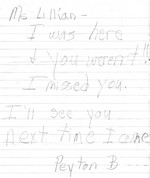 Ms Lillian -
I was here
& you weren't!!
I missed you.
I'll see you
next time I come
Peyton B